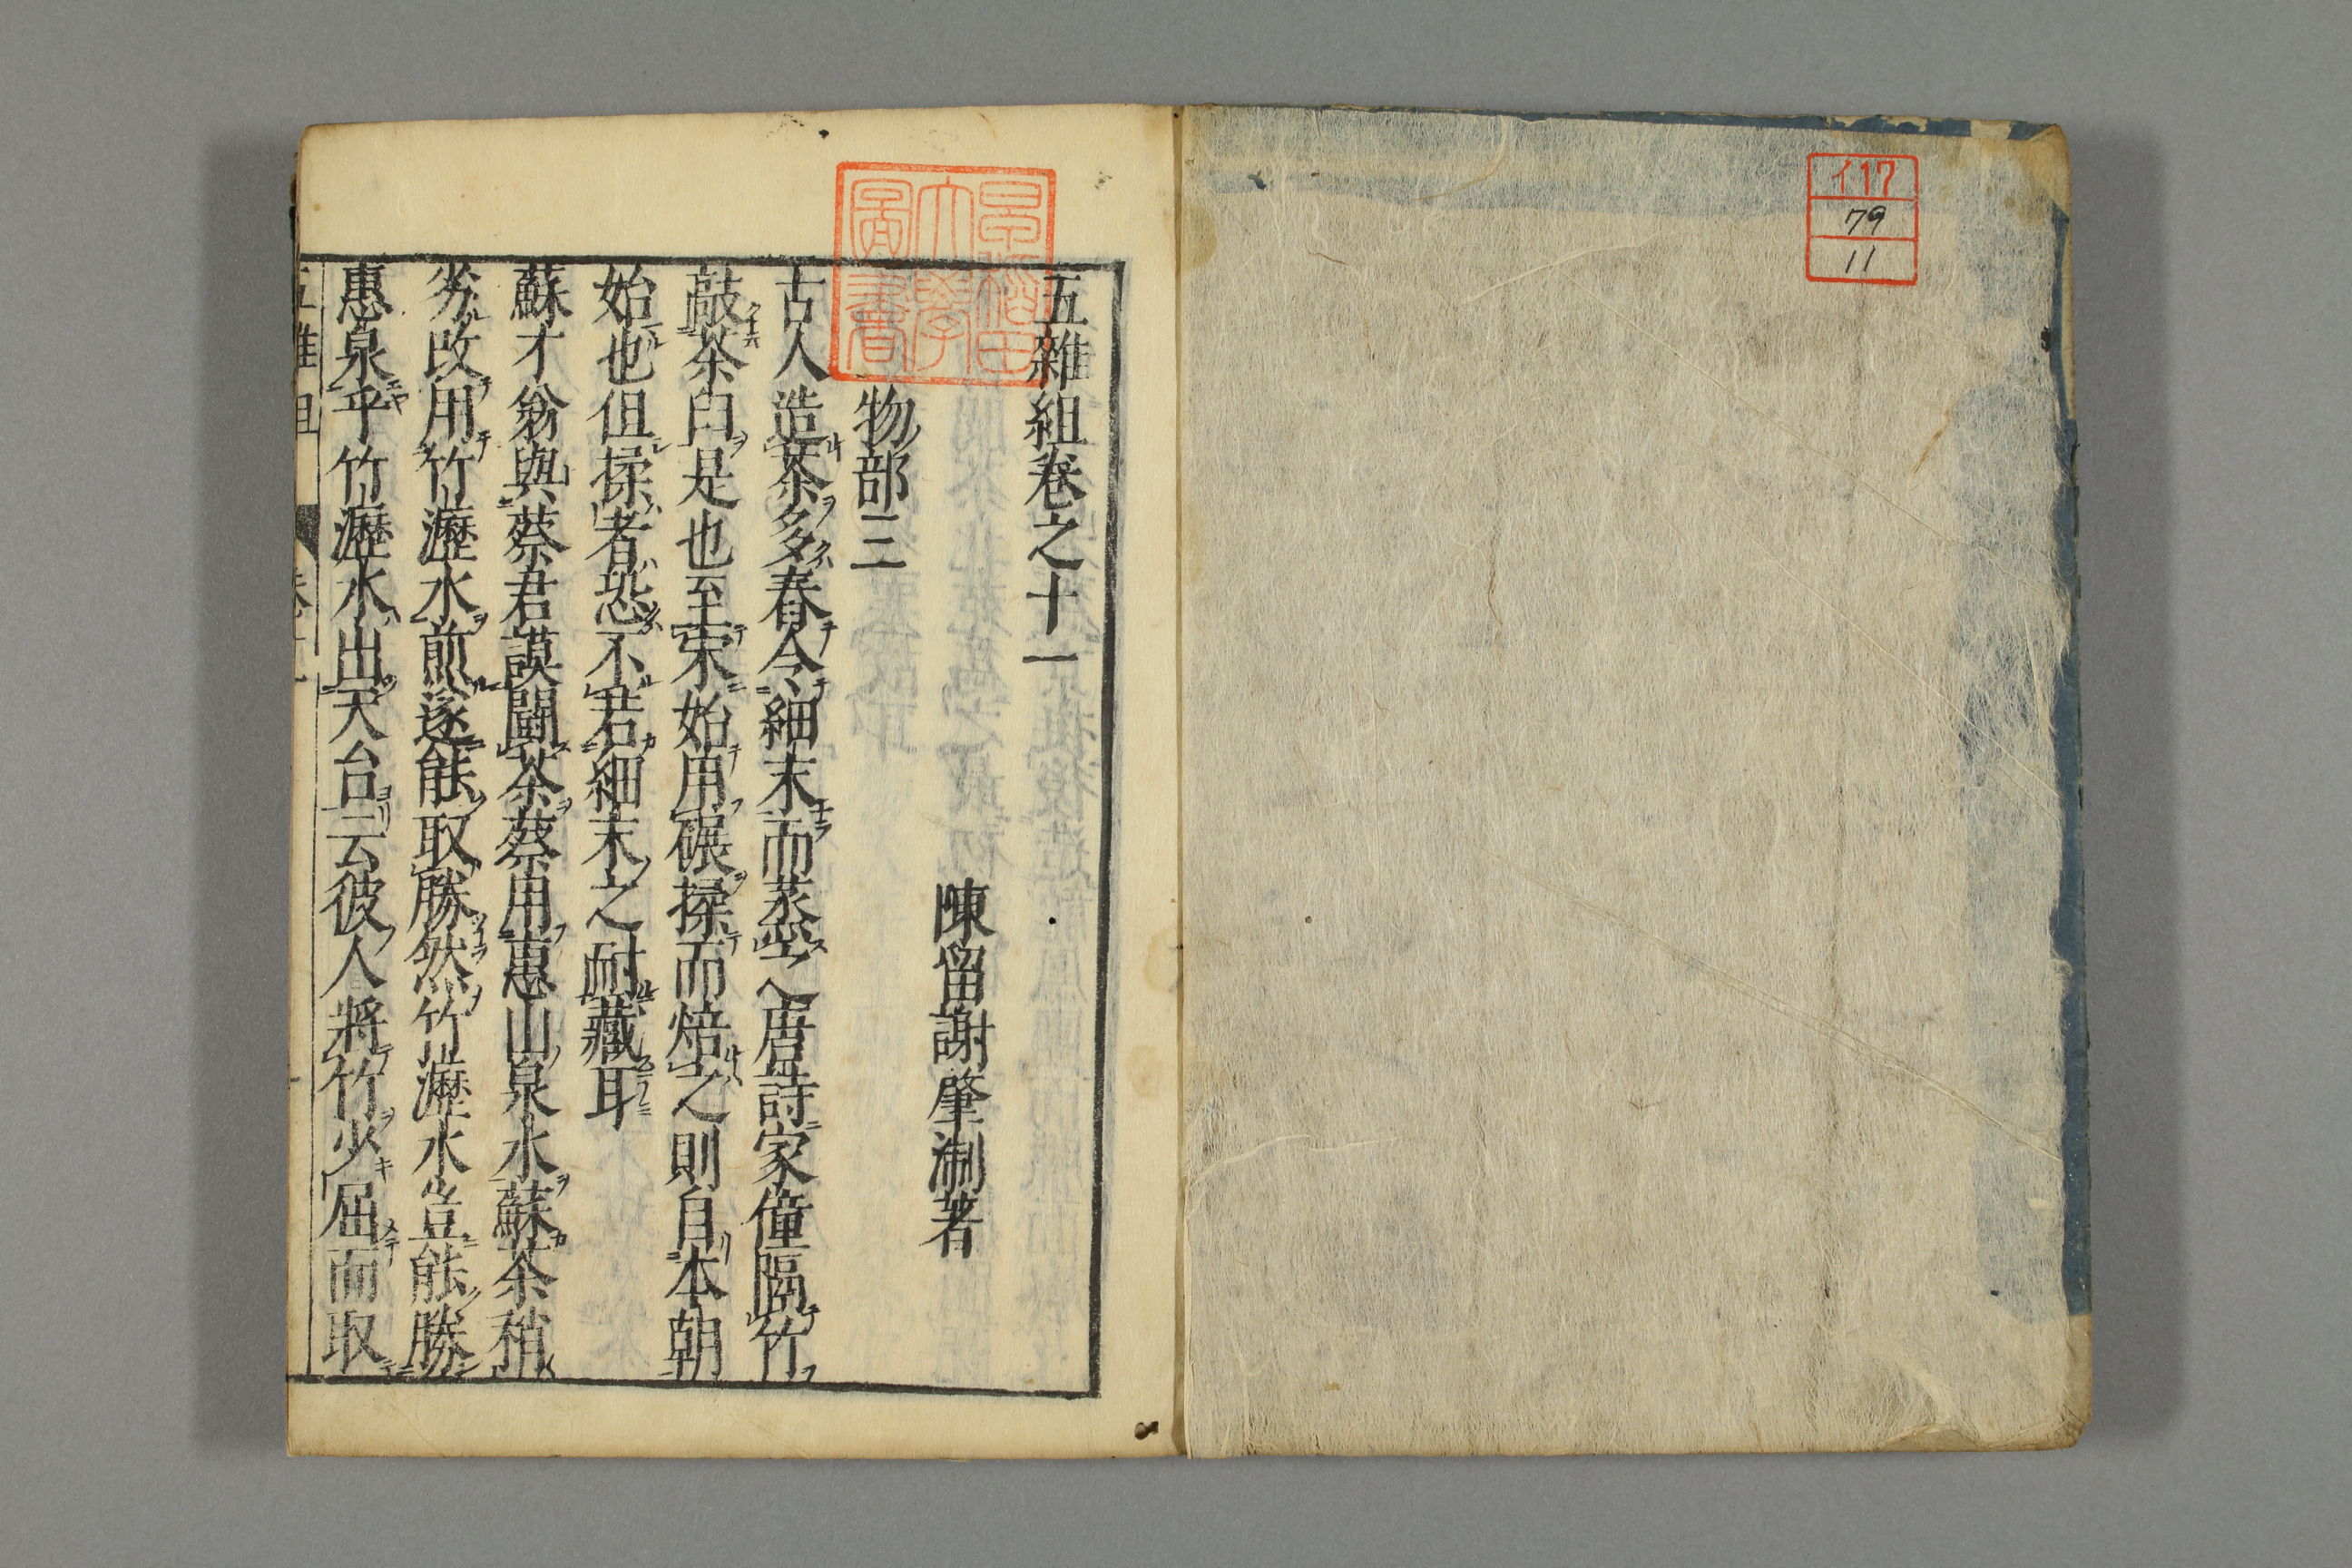 イ17
79
11
早稲田
大學
圖書
五雜組卷之十一
陳留謝肇淛著
物部三
古人造茶多舂令細末而蒸之唐詩家僮隔竹
敲茶臼是也至宋始用碾揉而焙之則自本朝
始也但揉者恐不若細末之耐藏耳
蘇才翁與蔡君謨鬬茶蔡用惠山泉水蘇茶稍
劣改用竹瀝水煎遂能取勝然竹瀝水豈能勝
惠泉乎竹瀝水出天台云彼人將竹少屈而取